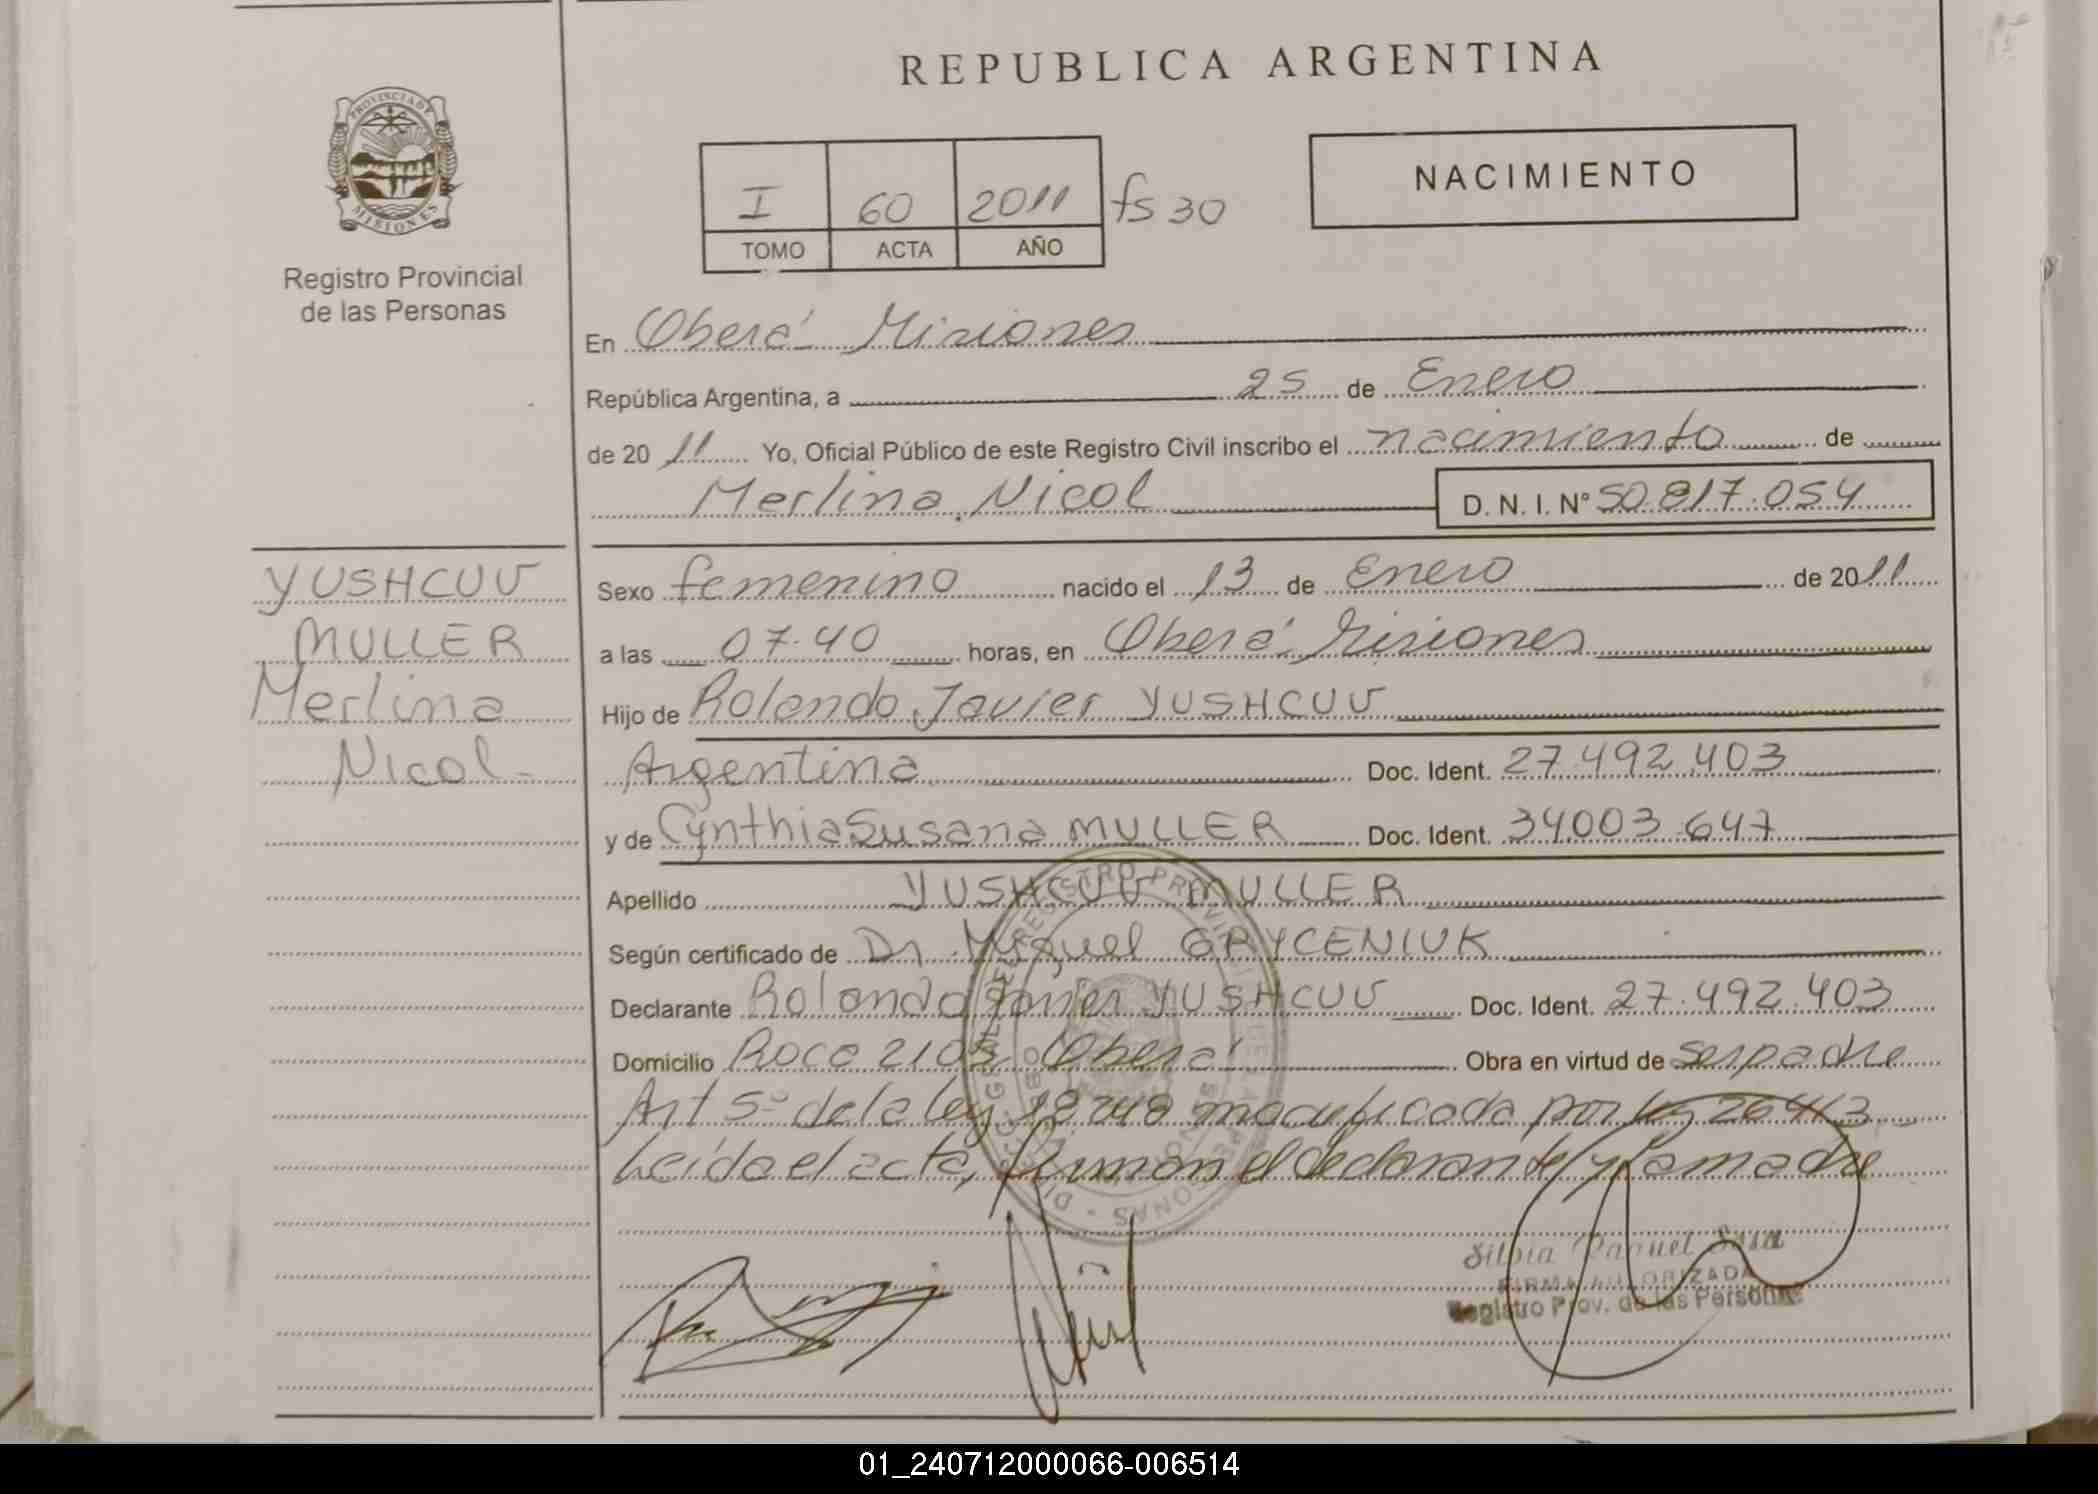 REPUBLICA ARGENTINA
PROVINCIA DE
MISIONES
Registro Provincial
de las Personas
I 60 2011 fs 30
TOMO ACTA AÑO
NACIMIENTO
En Oberá Misiones
República Argentina, a 25 de Enero
de 2011 Yo, Oficial Público de este Registro Civil inscribo el nacimiento de
Merlina Nicol D. N. I. N° 50.817.054
YUSHCUU
MULLER
Merlina
Nicol-
Sexo femenino nacido el 13 de Enero de 2011
a las 07.40 horas, en Oberá Misiones
Hijo de Rolando Javier YUSHCUU
Argentina Doc. Ident. 27.492.403
y de Cynthia Susana MULLER Doc. Ident. 34003.647
Apellido YUSHCUU MULLER
Según certificado de Dr. Miguel GRYCENIUK
Declarante Rolando Javier YUSHCUU Doc. Ident. 27.492.403
Domicilio Roca 2105 Oberá Obra en virtud de ser padre
Art 5° de la ley 18248 modificada por ley 26413
Leída el acta, firman el declarante y la madre
Silvia Raquel Sosa
FIRMA AUTORIZADA
Registro Prov. de las Personas
01_240712000066-006514